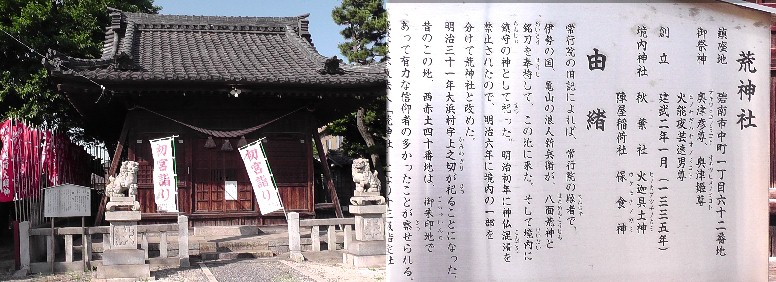 荒神社
鎮座地 碧南市中町一丁目六十二番地
御祭神 奥津彦尊 奥津姫尊
火能夜芸速男尊
創立 建武二年一月(一三三五年)
境内神社 秋葉社 火迦具土神
陣屋稲荷社 保食神
由緒
常行院の旧記によれば、常行院の縁者で、
伊勢の国、亀山の浪人新兵衛が、八面荒神と
銘刀を奉持して、この地に来た。そして境内に
鎮守の神として祀った。明治初年に神仏混淆を
禁止されたので、明治六年に境内の一部を
分けて荒神社と改めた。
明治三十一年大浜村字上之切が祀ることになった。
昔のこの地、西赤土四十番地は、御朱印地で
あって有力な信仰者の多かったことが察せられる。
初宮詣り
初宮詣り